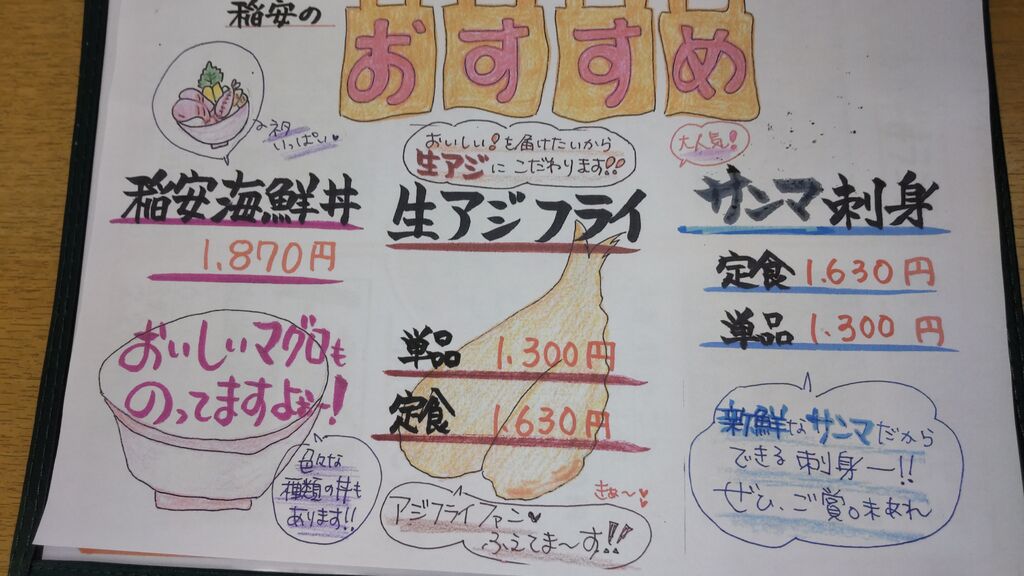 稲安の
おすすめ
ネタ
いっぱい♥
稲安海鮮丼
1,870円
おいしいマグロも
のってますよぉ~!
色々な
種類の丼も
あります!!
おいしい!を届けたいから
生アジにこだわります!!
生アジフライ
単品 1,300円
定食 1,630円
きぁ~♥
アジフライファン♥
ふえてま~す!!
大人気!
サンマ刺身
定食 1.630円
単品 1.300円
新鮮なサンマだから
できる刺身ー!!
ぜひ、ご賞味あれ